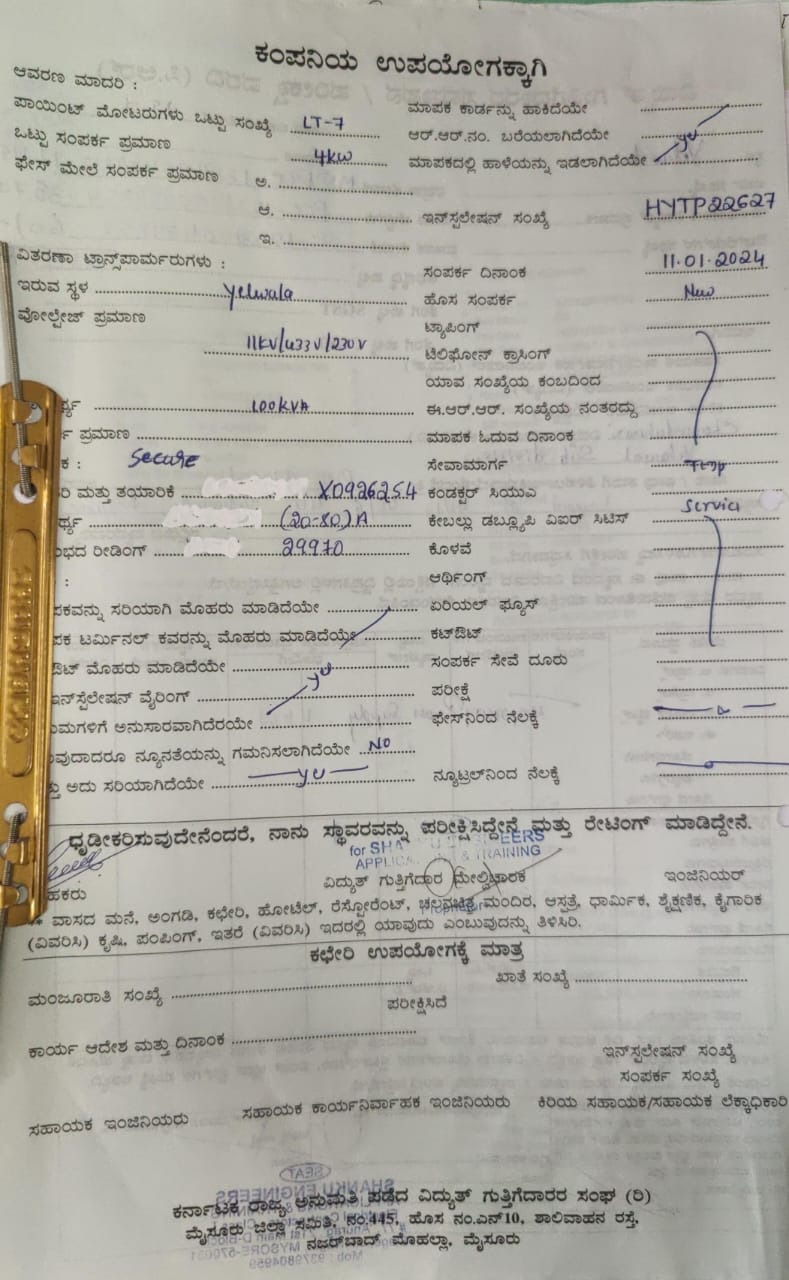 ಕಂಪನಿಯ ಉಪಯೋಗಕ್ಕಾಗಿ
ಆವರಣ ಮಾದರಿ :
ಪಾಯಿಂಟ್ ಮೋಟರುಗಳು ಒಟ್ಟು ಸಂಖ್ಯೆ LT-7 ಮಾಪಕ ಕಾರ್ಡನ್ನು ಹಾಕಿದೆಯೇ
ಒಟ್ಟು ಸಂಪರ್ಕ ಪ್ರಮಾಣ 4KW ಆರ್.ಆರ್.ನಂ. ಬರೆಯಲಾಗಿದೆಯೇ yes
ಫೇಸ್ ಮೇಲೆ ಸಂಪರ್ಕ ಪ್ರಮಾಣ ಅ. ಮಾಪಕದಲ್ಲಿ ಹಾಳೆಯನ್ನು ಇಡಲಾಗಿದೆಯೇ
ಆ. ಇನ್‌ಸ್ಟಲೇಷನ್ ಸಂಖ್ಯೆ HYTP22627
ಇ.
ವಿತರಣಾ ಟ್ರಾನ್ಸ್‌ಪಾರ್ಮರುಗಳು : ಸಂಪರ್ಕ ದಿನಾಂಕ 11.01.2024
ಇರುವ ಸ್ಥಳ Yelwala ಹೊಸ ಸಂಪರ್ಕ New
ವೋಲ್ಟೇಜ್ ಪ್ರಮಾಣ ಟ್ಯಾಪಿಂಗ್
11KV/433V/230V ಟೆಲಿಫೋನ್ ಕ್ರಾಸಿಂಗ್
ಯಾವ ಸಂಖ್ಯೆಯ ಕಂಬದಿಂದ
100KVA ಈ.ಆರ್.ಆರ್. ಸಂಖ್ಯೆಯ ನಂತರದ್ದು
ಪ್ರಮಾಣ ಮಾಪಕ ಓದುವ ದಿನಾಂಕ
ಕ : Secure ಸೇವಾಮಾರ್ಗ
ರಿ ಮತ್ತು ತಯಾರಿಕೆ X0926254 ಕಂಡಕ್ಟರ್ ಸಿಯುವಿ
ರ್ಥ್ಯ (20-80)A ಕೇಬಲ್ಲು ಡಬ್ಲ್ಯೂಪಿ ವಿಐರ್ ಸಿಟಿಸ್ Service
ಭದ ರೀಡಿಂಗ್ 29970 ಕೊಳವೆ
: ಆರ್ಥಿಂಗ್
ಪಕವನ್ನು ಸರಿಯಾಗಿ ಮೊಹರು ಮಾಡಿದೆಯೇ ಏರಿಯಲ್ ಫ್ಯೂಸ್
ಪಕ ಟರ್ಮಿನಲ್ ಕವರನ್ನು ಮೊಹರು ಮಾಡಿದೆಯೇ ಕಟ್‌ಔಟ್
ಔಟ್ ಮೊಹರು ಮಾಡಿದೆಯೇ yes ಸಂಪರ್ಕ ಸೇವೆ ದೂರು
ಇನ್‌ಸ್ಟೆಲೇಷನ್ ವೈರಿಂಗ್ ಪರೀಕ್ಷೆ
ಯಮಗಳಿಗೆ ಅನುಸಾರವಾಗಿದೆರಯೇ ಫೇಸ್‌ನಿಂದ ನೆಲಕ್ಕೆ
ವುದಾದರೂ ನ್ಯೂನತೆಯನ್ನು ಗಮನಿಸಲಾಗಿದೆಯೇ NO
ಅದು ಸರಿಯಾಗಿದೆಯೇ yes ನ್ಯೂಟ್ರಲ್‌ನಿಂದ ನೆಲಕ್ಕೆ
ಧೃಡೀಕರಿಸುವುದೇನೆಂದರೆ, ನಾನು ಸ್ಥಾವರವನ್ನು ಪರೀಕ್ಷಿಸಿದ್ದೇನೆ ಮತ್ತು ರೇಟಿಂಗ್ ಮಾಡಿದ್ದೇನೆ.
for SHA
APPLICA & TRAINING
ಹಕರು ವಿದ್ಯುತ್ ಗುತ್ತಿಗೆದಾರ ಮೇಲ್ವಿಚಾರಕ ಇಂಜಿನಿಯರ್
ವಾಸದ ಮನೆ, ಅಂಗಡಿ, ಕಛೇರಿ, ಹೋಟೆಲ್, ರೆಸ್ಟೋರೆಂಟ್, ಚಲನಚಿತ್ರ ಮಂದಿರ, ಆಸ್ಪತ್ರೆ, ಧಾರ್ಮಿಕ, ಶೈಕ್ಷಣಿಕ, ಕೈಗಾರಿಕ
(ವಿವರಿಸಿ) ಕೃಷಿ, ಪಂಪಿಂಗ್, ಇತರೆ (ವಿವರಿಸಿ) ಇದರಲ್ಲಿ ಯಾವುದು ಎಂಬುವುದನ್ನು ತಿಳಿಸಿರಿ.
ಕಛೇರಿ ಉಪಯೋಗಕ್ಕೆ ಮಾತ್ರ
ಮಂಜೂರಾತಿ ಸಂಖ್ಯೆ ಖಾತೆ ಸಂಖ್ಯೆ
ಪರೀಕ್ಷಿಸಿದೆ
ಕಾರ್ಯ ಆದೇಶ ಮತ್ತು ದಿನಾಂಕ
ಇನ್‌ಸ್ಟಲೇಷನ್ ಸಂಖ್ಯೆ
ಸಂಪರ್ಕ ಸಂಖ್ಯೆ
ಸಹಾಯಕ ಇಂಜಿನಿಯರು ಸಹಾಯಕ ಕಾರ್ಯನಿರ್ವಾಹಕ ಇಂಜಿನಿಯರು ಕಿರಿಯ ಸಹಾಯಕ/ಸಹಾಯಕ ಲೆಕ್ಕಾಧಿಕಾರಿ
ಕರ್ನಾಟಕ ರಾಜ್ಯ ಅನುಮತಿ ಪಡೆದ ವಿದ್ಯುತ್ ಗುತ್ತಿಗೆದಾರರ ಸಂಘ (ರಿ)
ಮೈಸೂರು ಜಿಲ್ಲಾ ಸಮಿತಿ, ನಂ.445, ಹೊಸ ನಂ.ಎನ್10, ಶಾಲಿವಾಹನ ರಸ್ತೆ,
ನಜರ್‌ಬಾದ್ ಮೊಹಲ್ಲಾ, ಮೈಸೂರು